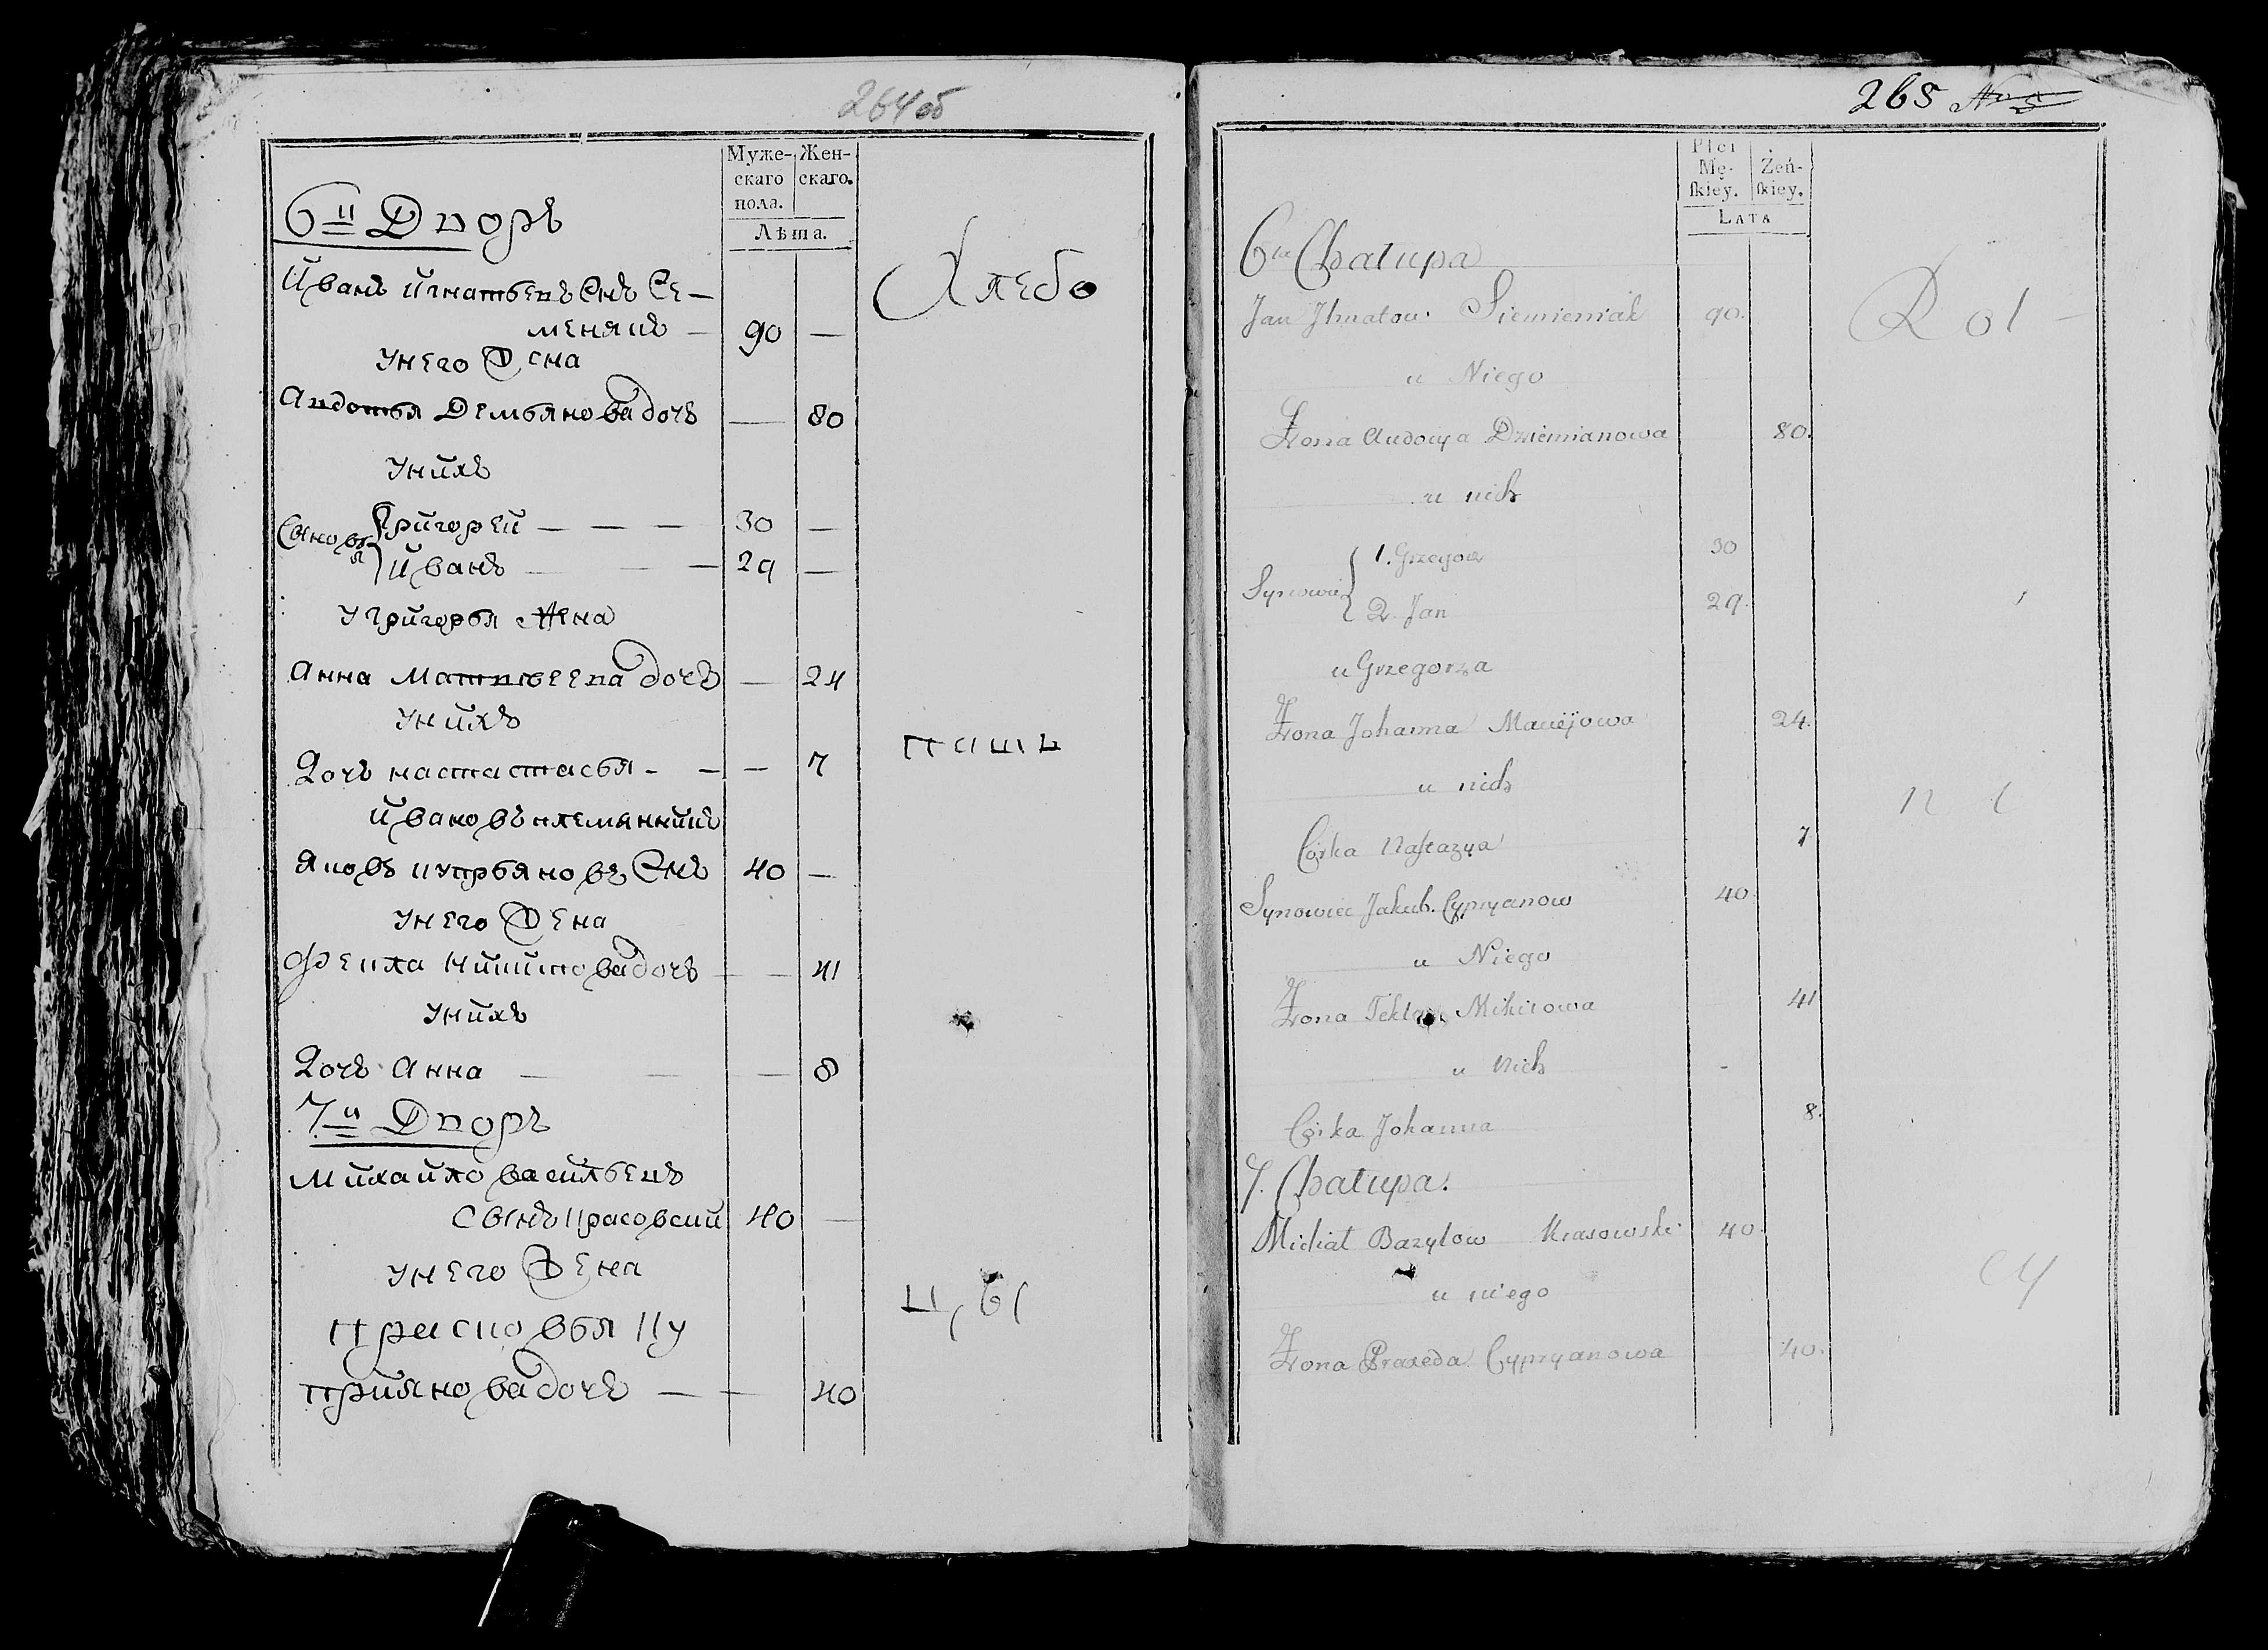 264об
Муже- Жен-
скаго скаго.
пола.
Лѣта.
6й Дворъ
Хлебо
Иванъ Игнатьевъ Снъ Се-
менякъ — 90 —
У него Жена
Авдотья Демьянова дочъ — 80
У нихъ
Сыновья { Григорей — — — 30 —
Иванъ — — — 29 —
У Григорья Жена
Анна Матвѣева дочъ — 24
У нихъ
Дочъ Настастасья - — — 7
паш
Ивановъ племянникъ
Яковъ Купрьяновъ Снъ 40 —
У него Жена
Фекла Никитова дочъ — — 41
У нихъ
Дочъ Анна — — — 8
7й Дворъ
Михайло Васильевъ
сынъ Красовский 40 —
У него Жена
Прасковья Ку
прияновa дочъ — — 40
цы
265
Płci
Mę- Żeń-
ſkiey. ſkiey.
Lata
6ta Chałupa
Jan Ihnatow Siemieniak 90.
Rol
u Niego
Żona Audocya Dziemianowa 80.
u nich
Synowie { 1. Grzegorz 30
2. Jan 29.
u Grzegorza
Żona Johanna Maciejowa 24.
u nich
ni
Córka Naſtazya 7
Synowiec Jakub Cypryanow 40.
u Niego
Żona Tekla Mikitowa 41
u Nich
Córka Johanna 8.
7. Chałupa.
Michał Bazylow Krasowski 40.
cy
u niego
Żona Praxeda Cypryanowa 40.